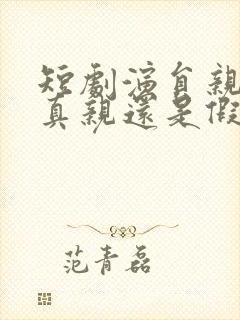 短劇演員親
真親還是假
范青磊